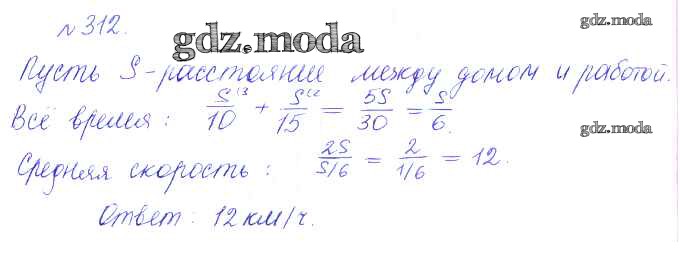 № 312.
gdz.moda
gdz.moda
Пусть S - расстояние между домом и работой.
Всё время: S^(3/10 + S^(2/15 = 5S/30 = S/6.
gdz.moda
Средняя скорость: 2S/S/6 = 2/1/6 = 12.
Ответ: 12 км/ч.
gdz.moda